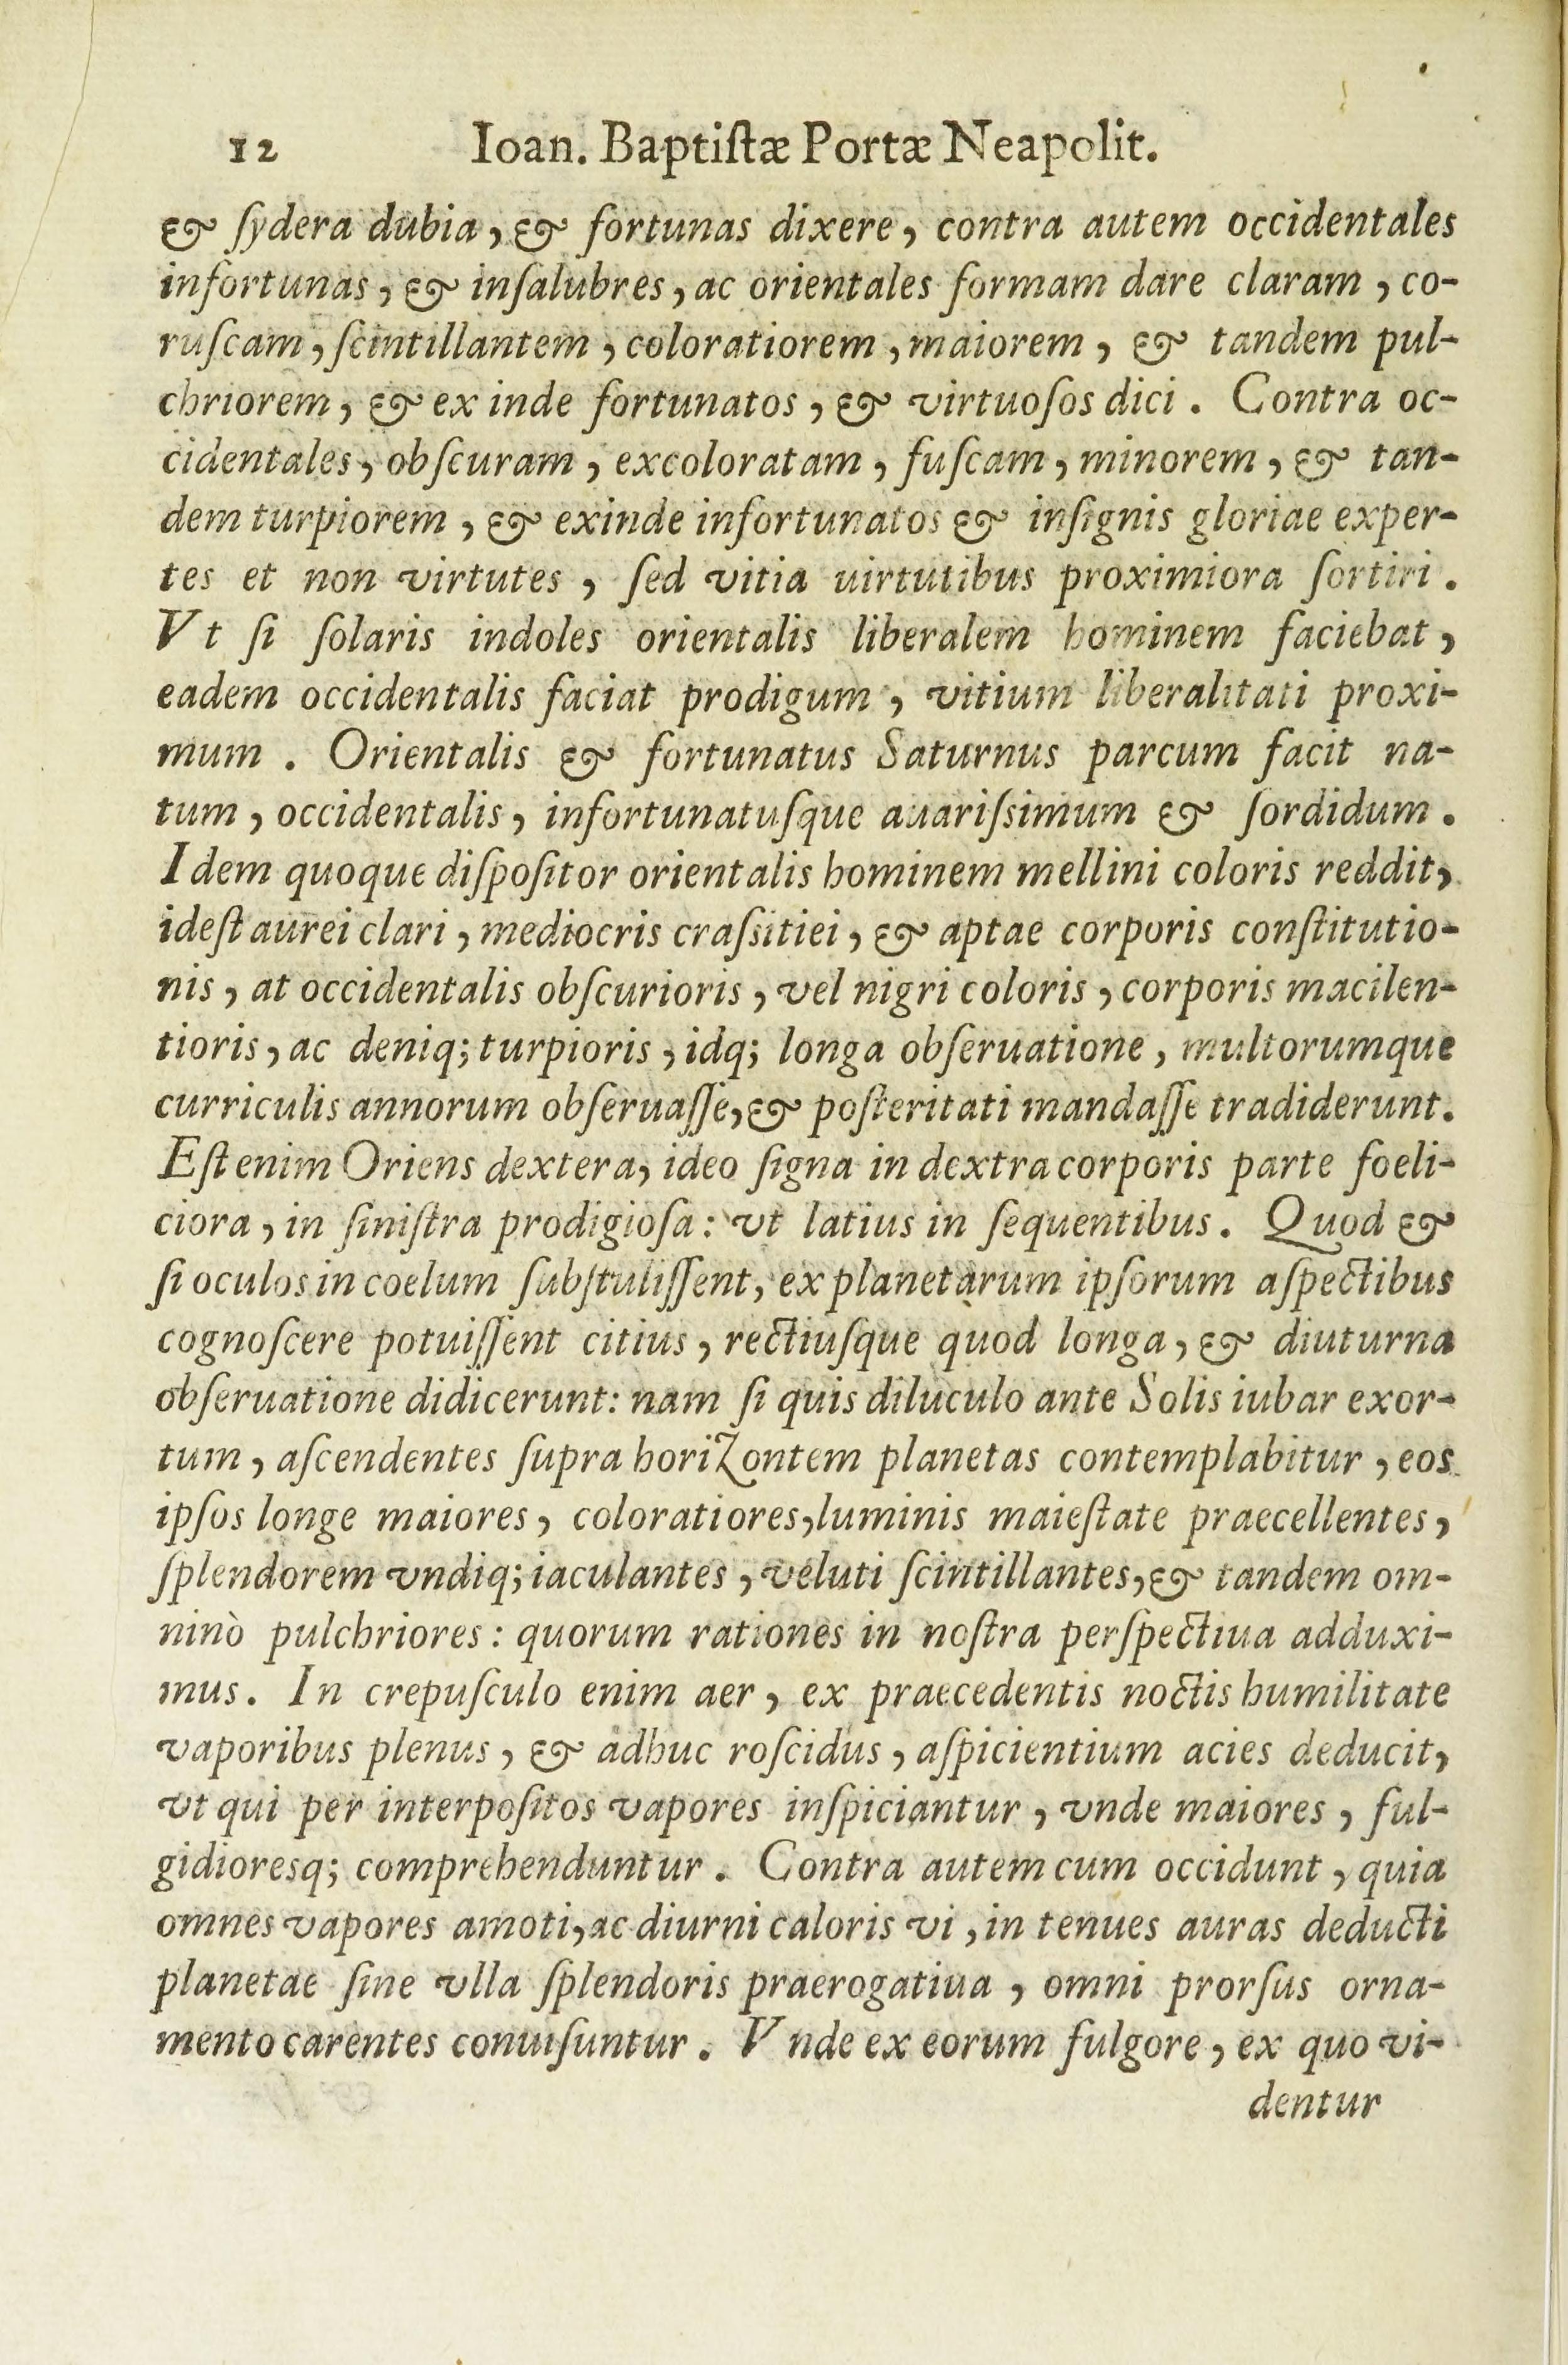 12 Ioan. Baptiſtæ Portæ Neapolit.
& ſydera dubia, & fortunas dixere, contra autem occidentales
infortunas, & inſalubres, ac orientales formam dare claram, co-
ruſcam, ſcintillantem, coloratiorem, maiorem, & tandem pul-
chriorem, & ex inde fortunatos, & virtuoſos dici. Contra oc-
cidentales, obſcuram, excoloratam, fuſcam, minorem, & tan-
dem turpiorem, & exinde infortunatos & inſignis gloriae exper-
tes et non virtutes, ſed vitia uirtutibus proximiora ſortiri.
Vt ſi ſolaris indoles orientalis liberalem hominem faciebat,
eadem occidentalis faciat prodigum, vitium liberalitati proxi-
mum. Orientalis & fortunatus Saturnus parcum facit na-
tum, occidentalis, infortunatuſque auariſsimum & ſordidum.
Idem quoque diſpoſitor orientalis hominem mellini coloris reddit,
ideſt aurei clari, mediocris craſsitiei, & aptae corporis conſtitutio-
nis, at occidentalis obſcurioris, vel nigri coloris, corporis macilen-
tioris, ac deniq; turpioris, idq; longa obſeruatione, multorumque
curriculis annorum obſeruaſſe, & poſteritati mandaſſe tradiderunt.
Eſt enim Oriens dextera, ideo ſigna in dextra corporis parte foeli-
ciora, in ſiniſtra prodigioſa: vt latius in ſequentibus. Quod &
ſi oculos in coelum ſubſtuliſſent, ex planetarum ipſorum aſpectibus
cognoſcere potuiſſent citius, rectiuſque quod longa, & diuturna
obſeruatione didicerunt: nam ſi quis diluculo ante Solis iubar exor-
tum, aſcendentes ſupra horiZontem planetas contemplabitur, eos
ipſos longe maiores, coloratiores, luminis maieſtate praecellentes,
ſplendorem vndiq; iaculantes, veluti ſcintillantes, & tandem om-
ninò pulchriores: quorum rationes in noſtra perſpectiua adduxi-
mus. In crepuſculo enim aer, ex praecedentis noctis humilitate
vaporibus plenus, & adhuc roſcidus, aſpicientium acies deducit,
vt qui per interpoſitos vapores inſpiciantur, vnde maiores, ful-
gidioresq; comprehenduntur. Contra autem cum occidunt, quia
omnes vapores amoti, ac diurni caloris vi, in tenues auras deducti
planetae ſine vlla ſplendoris praerogatiua, omni prorſus orna-
mento carentes conuiſuntur. Vnde ex eorum fulgore, ex quo vi-
dentur